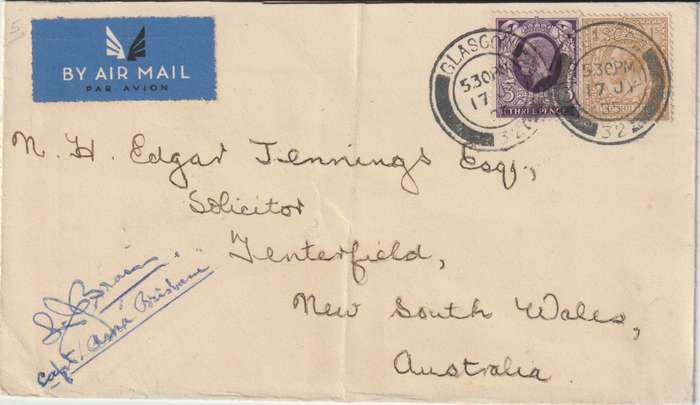 5
BY AIR MAIL
PAR AVION
GLASGOW
5 30 PM
17 JY
32
THREE PENCE
5 30 PM
17 JY
32
N. H. Edgar Jennings Esq.,
Solicitor
Tenterfield,
New South Wales,
Australia.
Capt. Brisbane